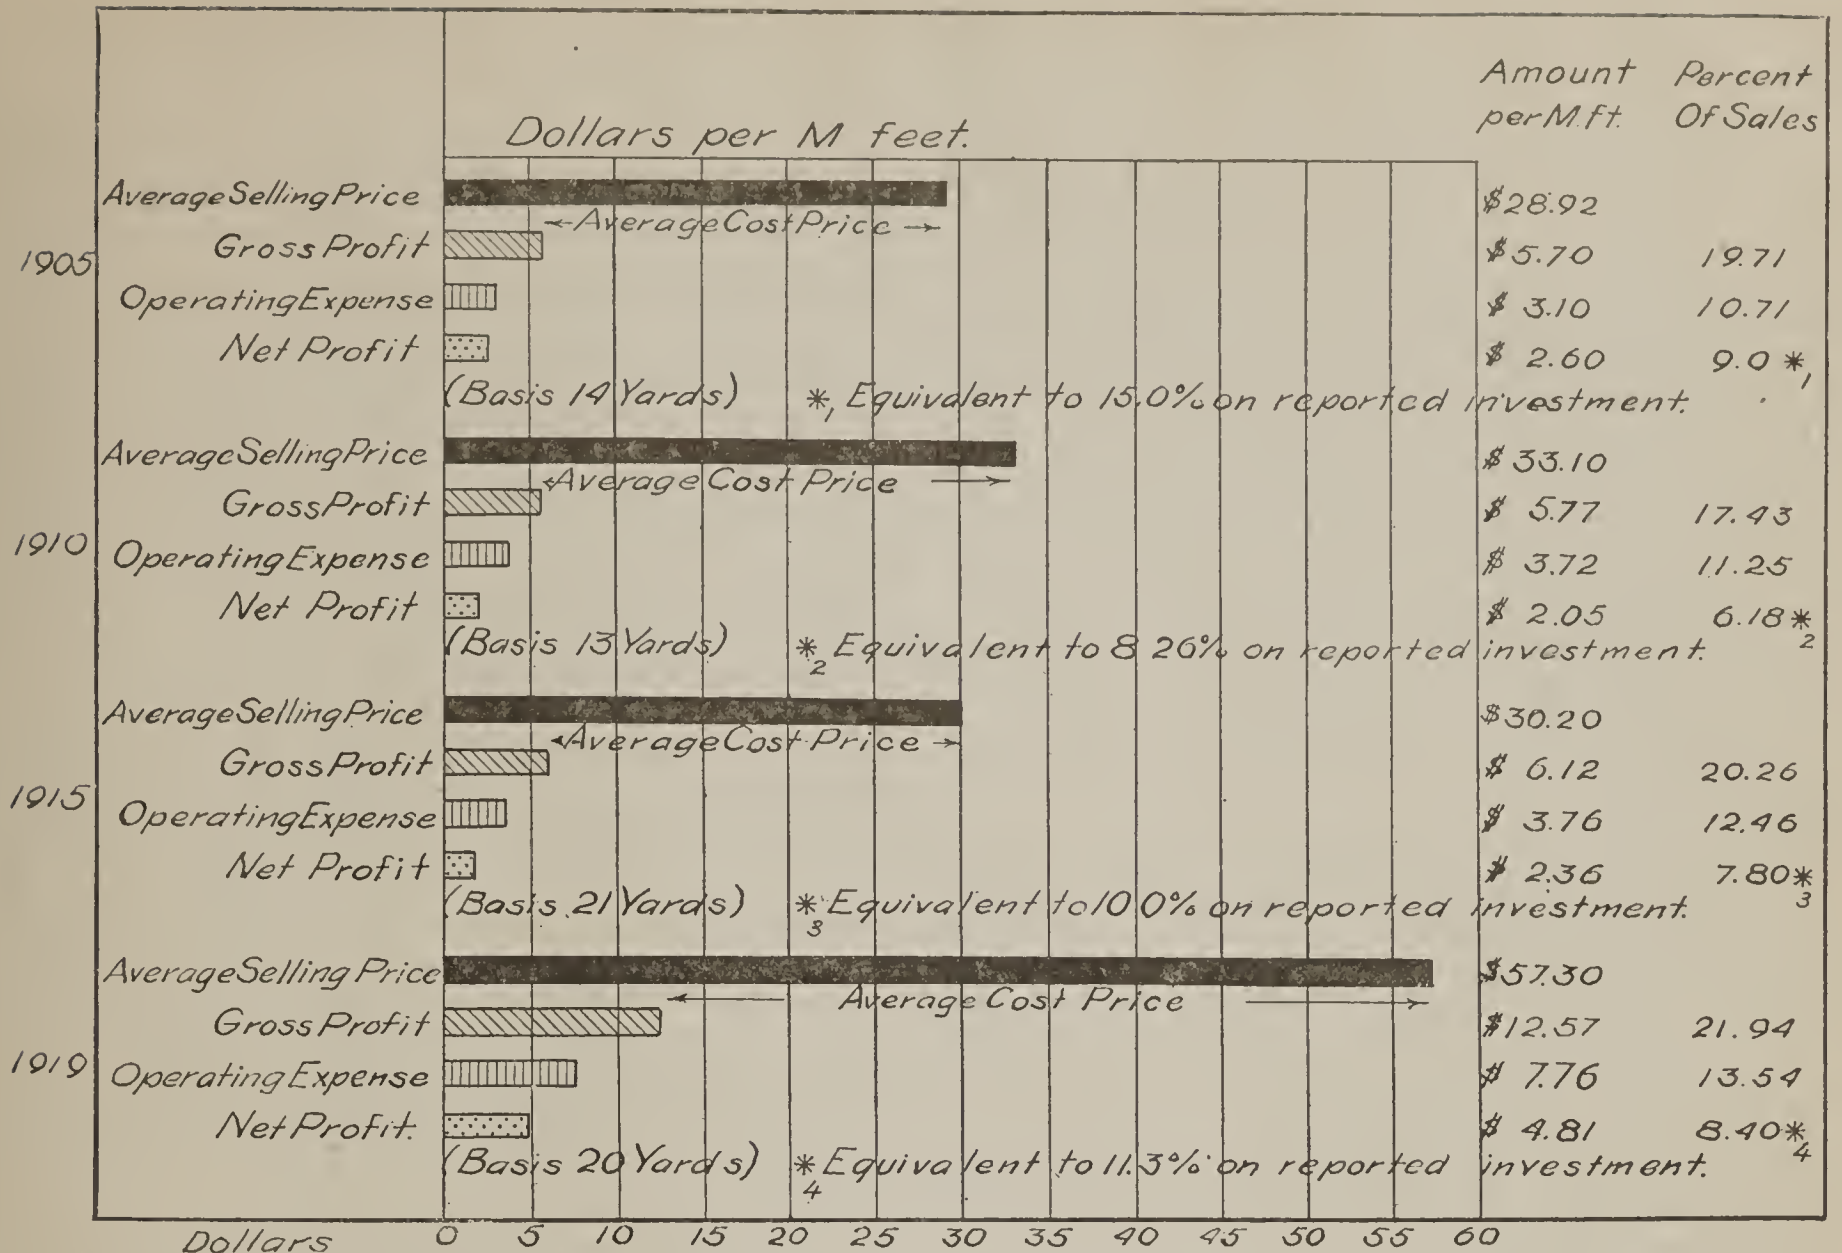 Amount Percent
per M. ft. Of Sales
Dollars per M feet.
1905
Average Selling Price $28.92
←Average Cost Price→
Gross Profit $5.70 19.71
Operating Expense $3.10 10.71
Net Profit $2.60 9.0 *1
(Basis 14 Yards) *1 Equivalent to 15.0% on reported investment.
1910
Average Selling Price $33.10
←Average Cost Price →
Gross Profit $5.77 17.43
Operating Expense $3.72 11.25
Net Profit $2.05 6.18*2
(Basis 13 Yards) *2 Equivalent to 8 26% on reported investment.
1915
Average Selling Price $30.20
←Average Cost Price→
Gross Profit $6.12 20.26
Operating Expense $3.76 12.46
Net Profit $2.36 7.80*3
(Basis 21 Yards) *3 Equivalent to 10 0% on reported investment.
1919
Average Selling Price $57.30
← Average Cost Price →
Gross Profit $12.57 21.94
Operating Expense $7.76 13.54
Net Profit. $4.81 8.40*4
(Basis 20 Yards) *4 Equivalent to 11.3% on reported investment.
Dollars 0 5 10 15 20 25 30 35 40 45 50 55 60